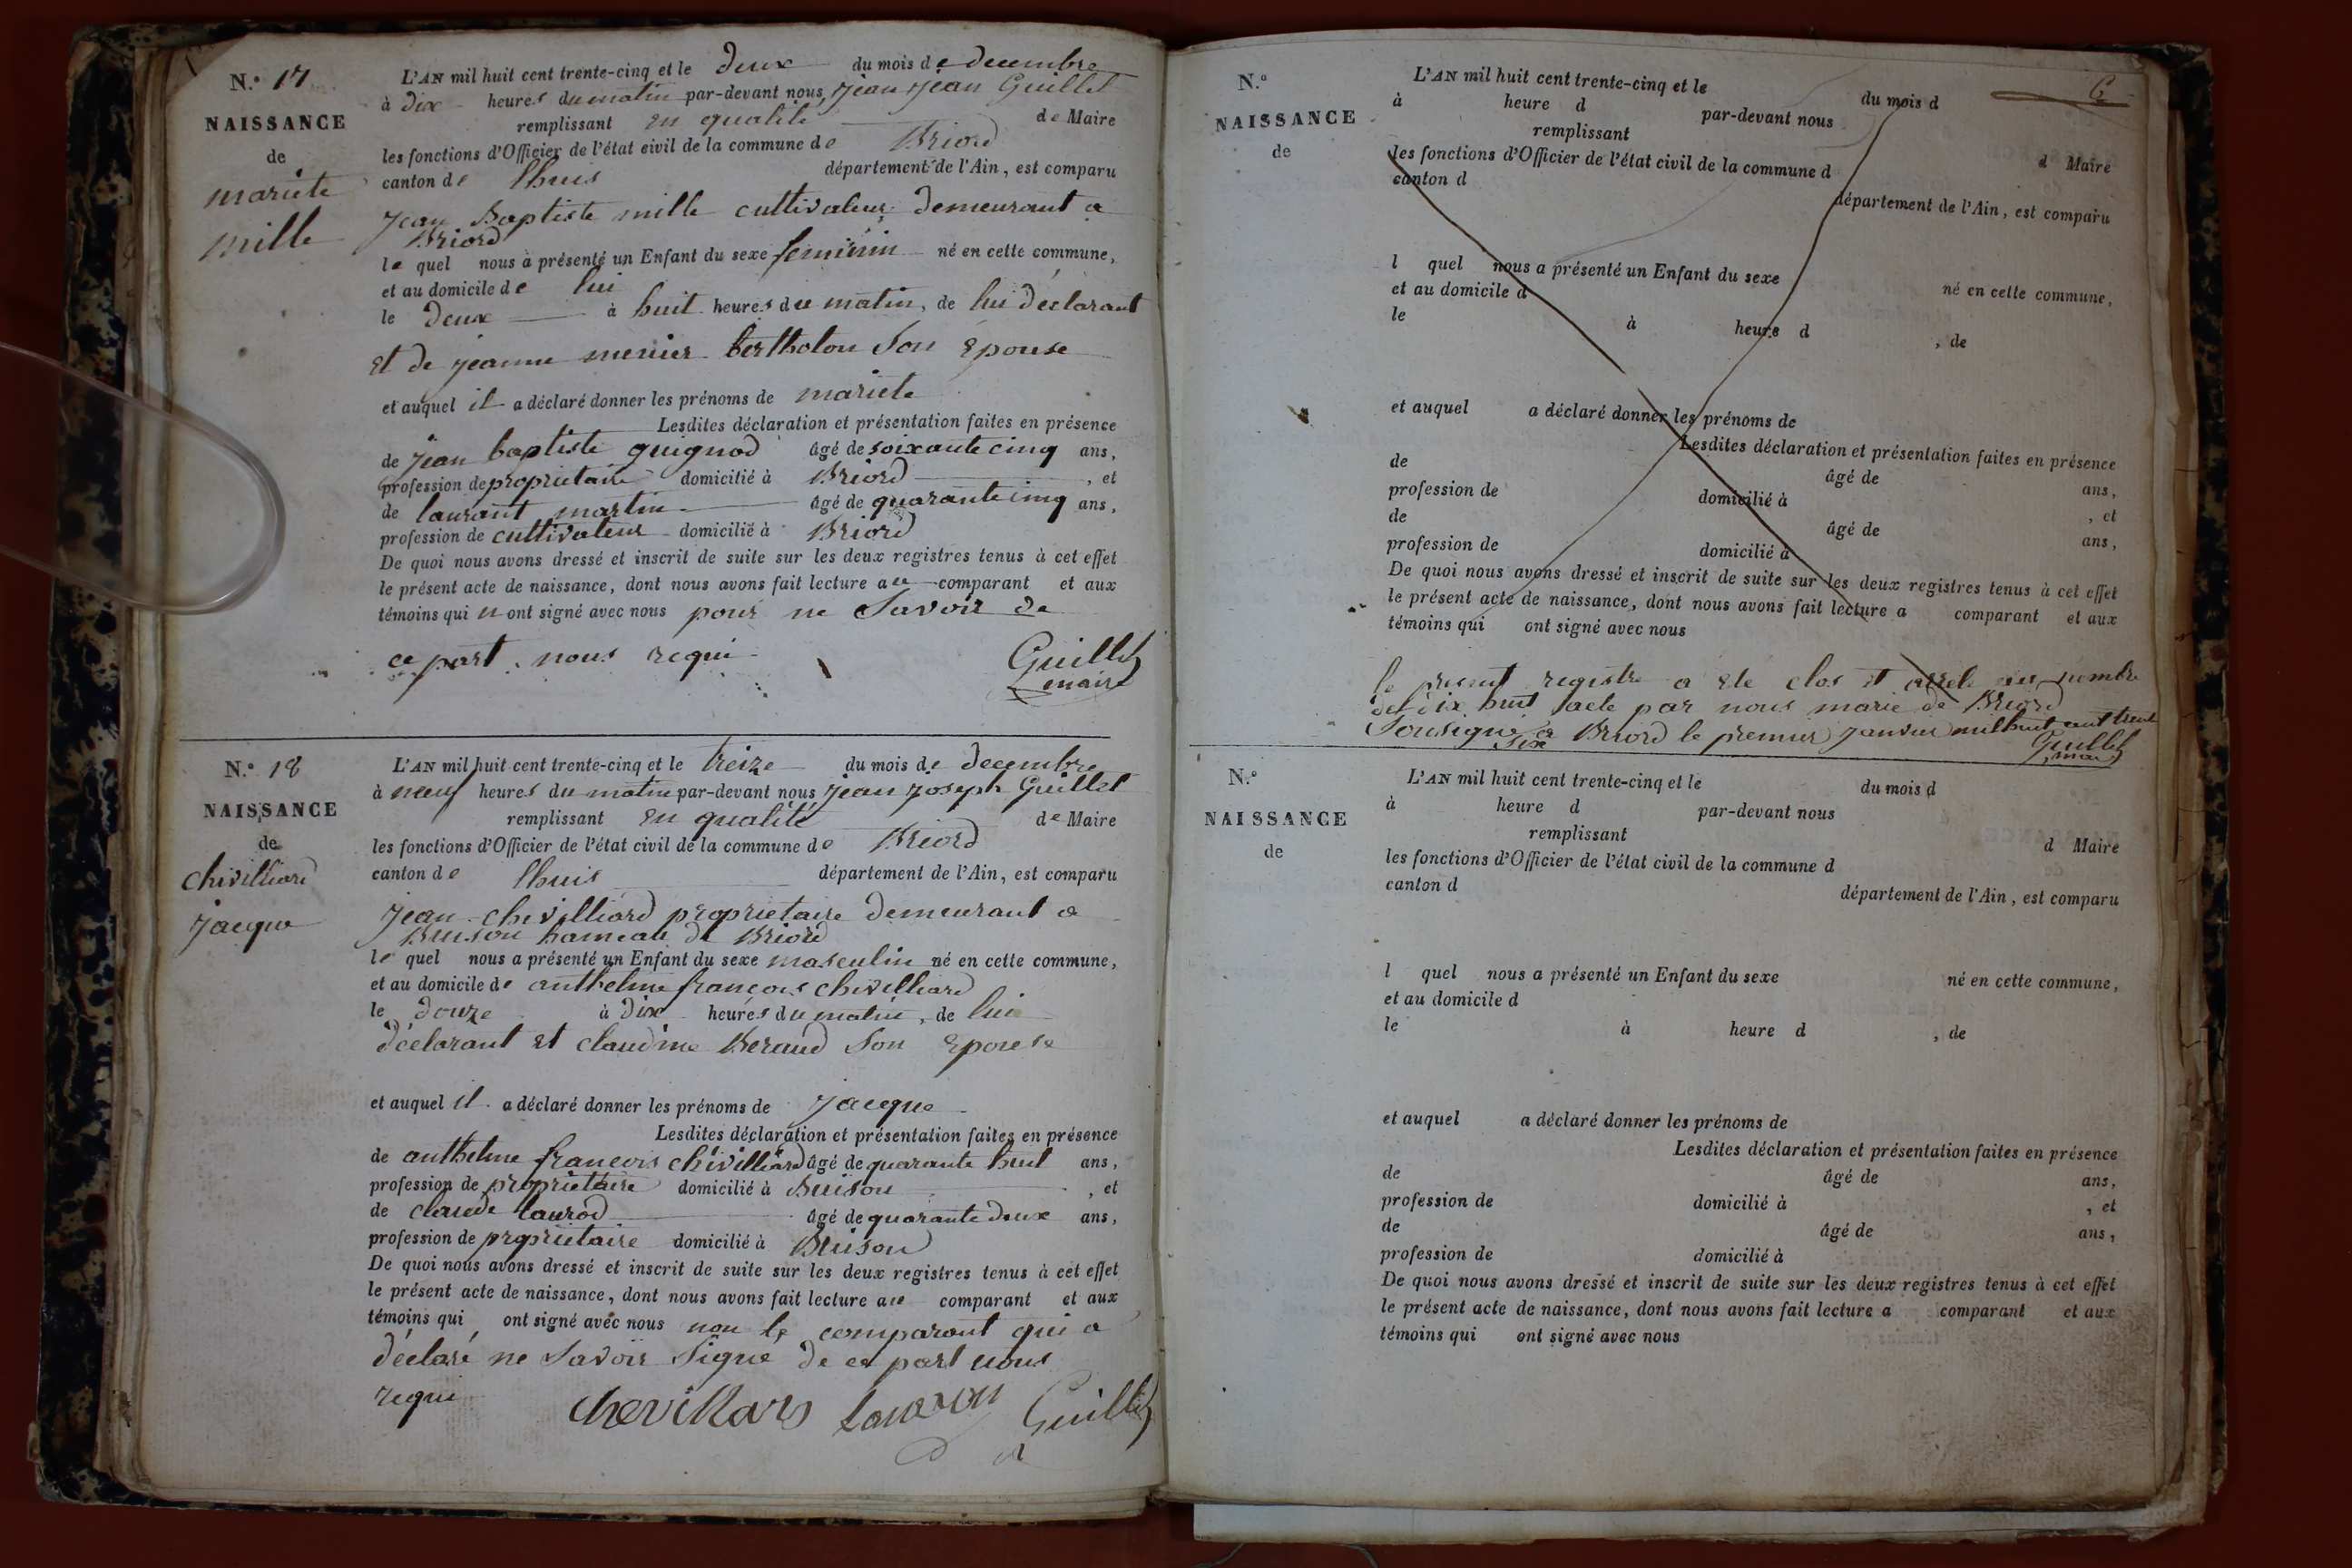 N.° 17
NAISSANCE
de
mariete
mille
L'AN mil huit cent trente-cinq et le deux du mois de decembre
à dix heures du matin par-devant nous jean jean Guillet
remplissant en qualité de Maire
les fonctions d'Officier de l'état civil de la commune de Briord
canton de lhuis département de l'Ain, est comparu
jean Baptiste mille cultivateur demeurant a
Briord
le quel nous a présenté un Enfant du sexe feminin né en cette commune,
et au domicile de lui
le deux à huit heures du matin, de lui déclarant
et de jeanne menier bertholon son épouse
et auquel il a déclaré donner les prénoms de mariete
Lesdites déclaration et présentation faites en présence
de jean baptiste guignod âgé de soixante cinq ans,
profession de proprietaire domicilié à Briord, et
de laurant martin âgé de quarante cinq ans,
profession de cultivateur domicilié à Briord
De quoi nous avons dressé et inscrit de suite sur les deux registres tenus à cet effet
le présent acte de naissance, dont nous avons fait lecture au comparant et aux
témoins qui n ont signé avec nous pour ne Savoir de
ce part nous requi
Guillet
maire
N.° 18
NAISSANCE
de
chivilliard
jacque
L'AN mil huit cent trente-cinq et le treize du mois de decembre
à neuf heures du matin par-devant nous jean joseph Guillet
remplissant en qualité de Maire
les fonctions d'Officier de l'état civil de la commune de Briord
canton de lhuis département de l'Ain, est comparu
jean chivilliard proprietaire demeurant a
Buison hameau de Briord
le quel nous a présenté un Enfant du sexe masculin né en cette commune,
et au domicile de anthelme francois chivilliard
le douze à dix heures du matin, de lui
déclarant et claudine Beraud son épouse
et auquel il a déclaré donner les prénoms de jacque
Lesdites déclaration et présentation faites en présence
de anthelme francois chivilliard âgé de quarante huit ans,
profession de proprietaire domicilié à Buison, et
de claude laurod âgé de quarante deux ans,
profession de proprietaire domicilié à Buison
De quoi nous avons dressé et inscrit de suite sur les deux registres tenus à cet effet
le présent acte de naissance, dont nous avons fait lecture au comparant et aux
témoins qui ont signé avec nous non le comparant qui a
déclaré ne Savoir Signé de ce part nous
requi
chevillard Guillet
6
N.°
NAISSANCE
de
L'AN mil huit cent trente-cinq et le du mois d
à heure d par-devant nous
remplissant d Maire
les fonctions d'Officier de l'état civil de la commune d
canton d département de l'Ain, est comparu
l quel nous a présenté un Enfant du sexe né en cette commune,
et au domicile d
le à heure d , de
et auquel a déclaré donner les prénoms de
Lesdites déclaration et présentation faites en présence
de âgé de ans,
profession de domicilié à , et
de âgé de ans,
profession de domicilié à
De quoi nous avons dressé et inscrit de suite sur les deux registres tenus à cet effet
le présent acte de naissance, dont nous avons fait lecture a comparant et aux
témoins qui ont signé avec nous
le present registre a ete clos et areté au nombre
de dix huit acte par nous marie de Briord
Sousigné a Briord le premier janvier mil huit cent trente
six
Guillet
maire
N.°
NAISSANCE
de
L'AN mil huit cent trente-cinq et le du mois d
à heure d par-devant nous
remplissant d Maire
les fonctions d'Officier de l'état civil de la commune d
canton d département de l'Ain, est comparu
l quel nous a présenté un Enfant du sexe né en cette commune,
et au domicile d
le à heure d , de
et auquel a déclaré donner les prénoms de
Lesdites déclaration et présentation faites en présence
de âgé de ans,
profession de domicilié à , et
de âgé de ans,
profession de domicilié à
De quoi nous avons dressé et inscrit de suite sur les deux registres tenus à cet effet
le présent acte de naissance, dont nous avons fait lecture a comparant et aux
témoins qui ont signé avec nous